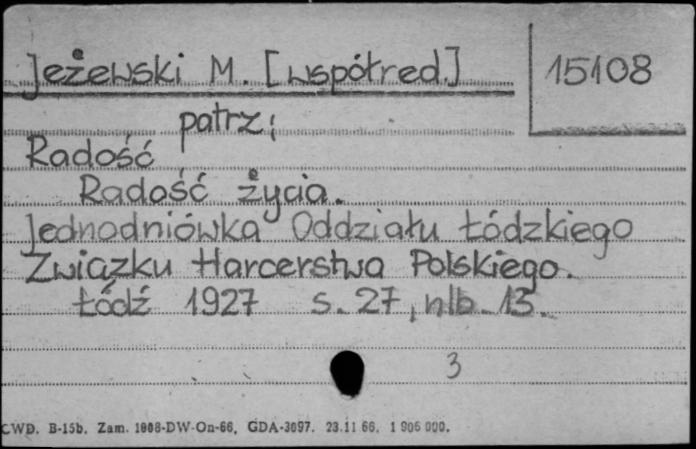 Jeżewski M. [współred.] 15108
patrz:
Radość
Radość życia.
Jednodniówka Oddziału Łódzkiego
Związku Harcerstwa Polskiego.
Łódź 1927 s. 27, nlb. 13.
3
CWD. B-15b. Zam. 1908-DW-On-66. GDA-3097. 23.11 66. 1 906 000.